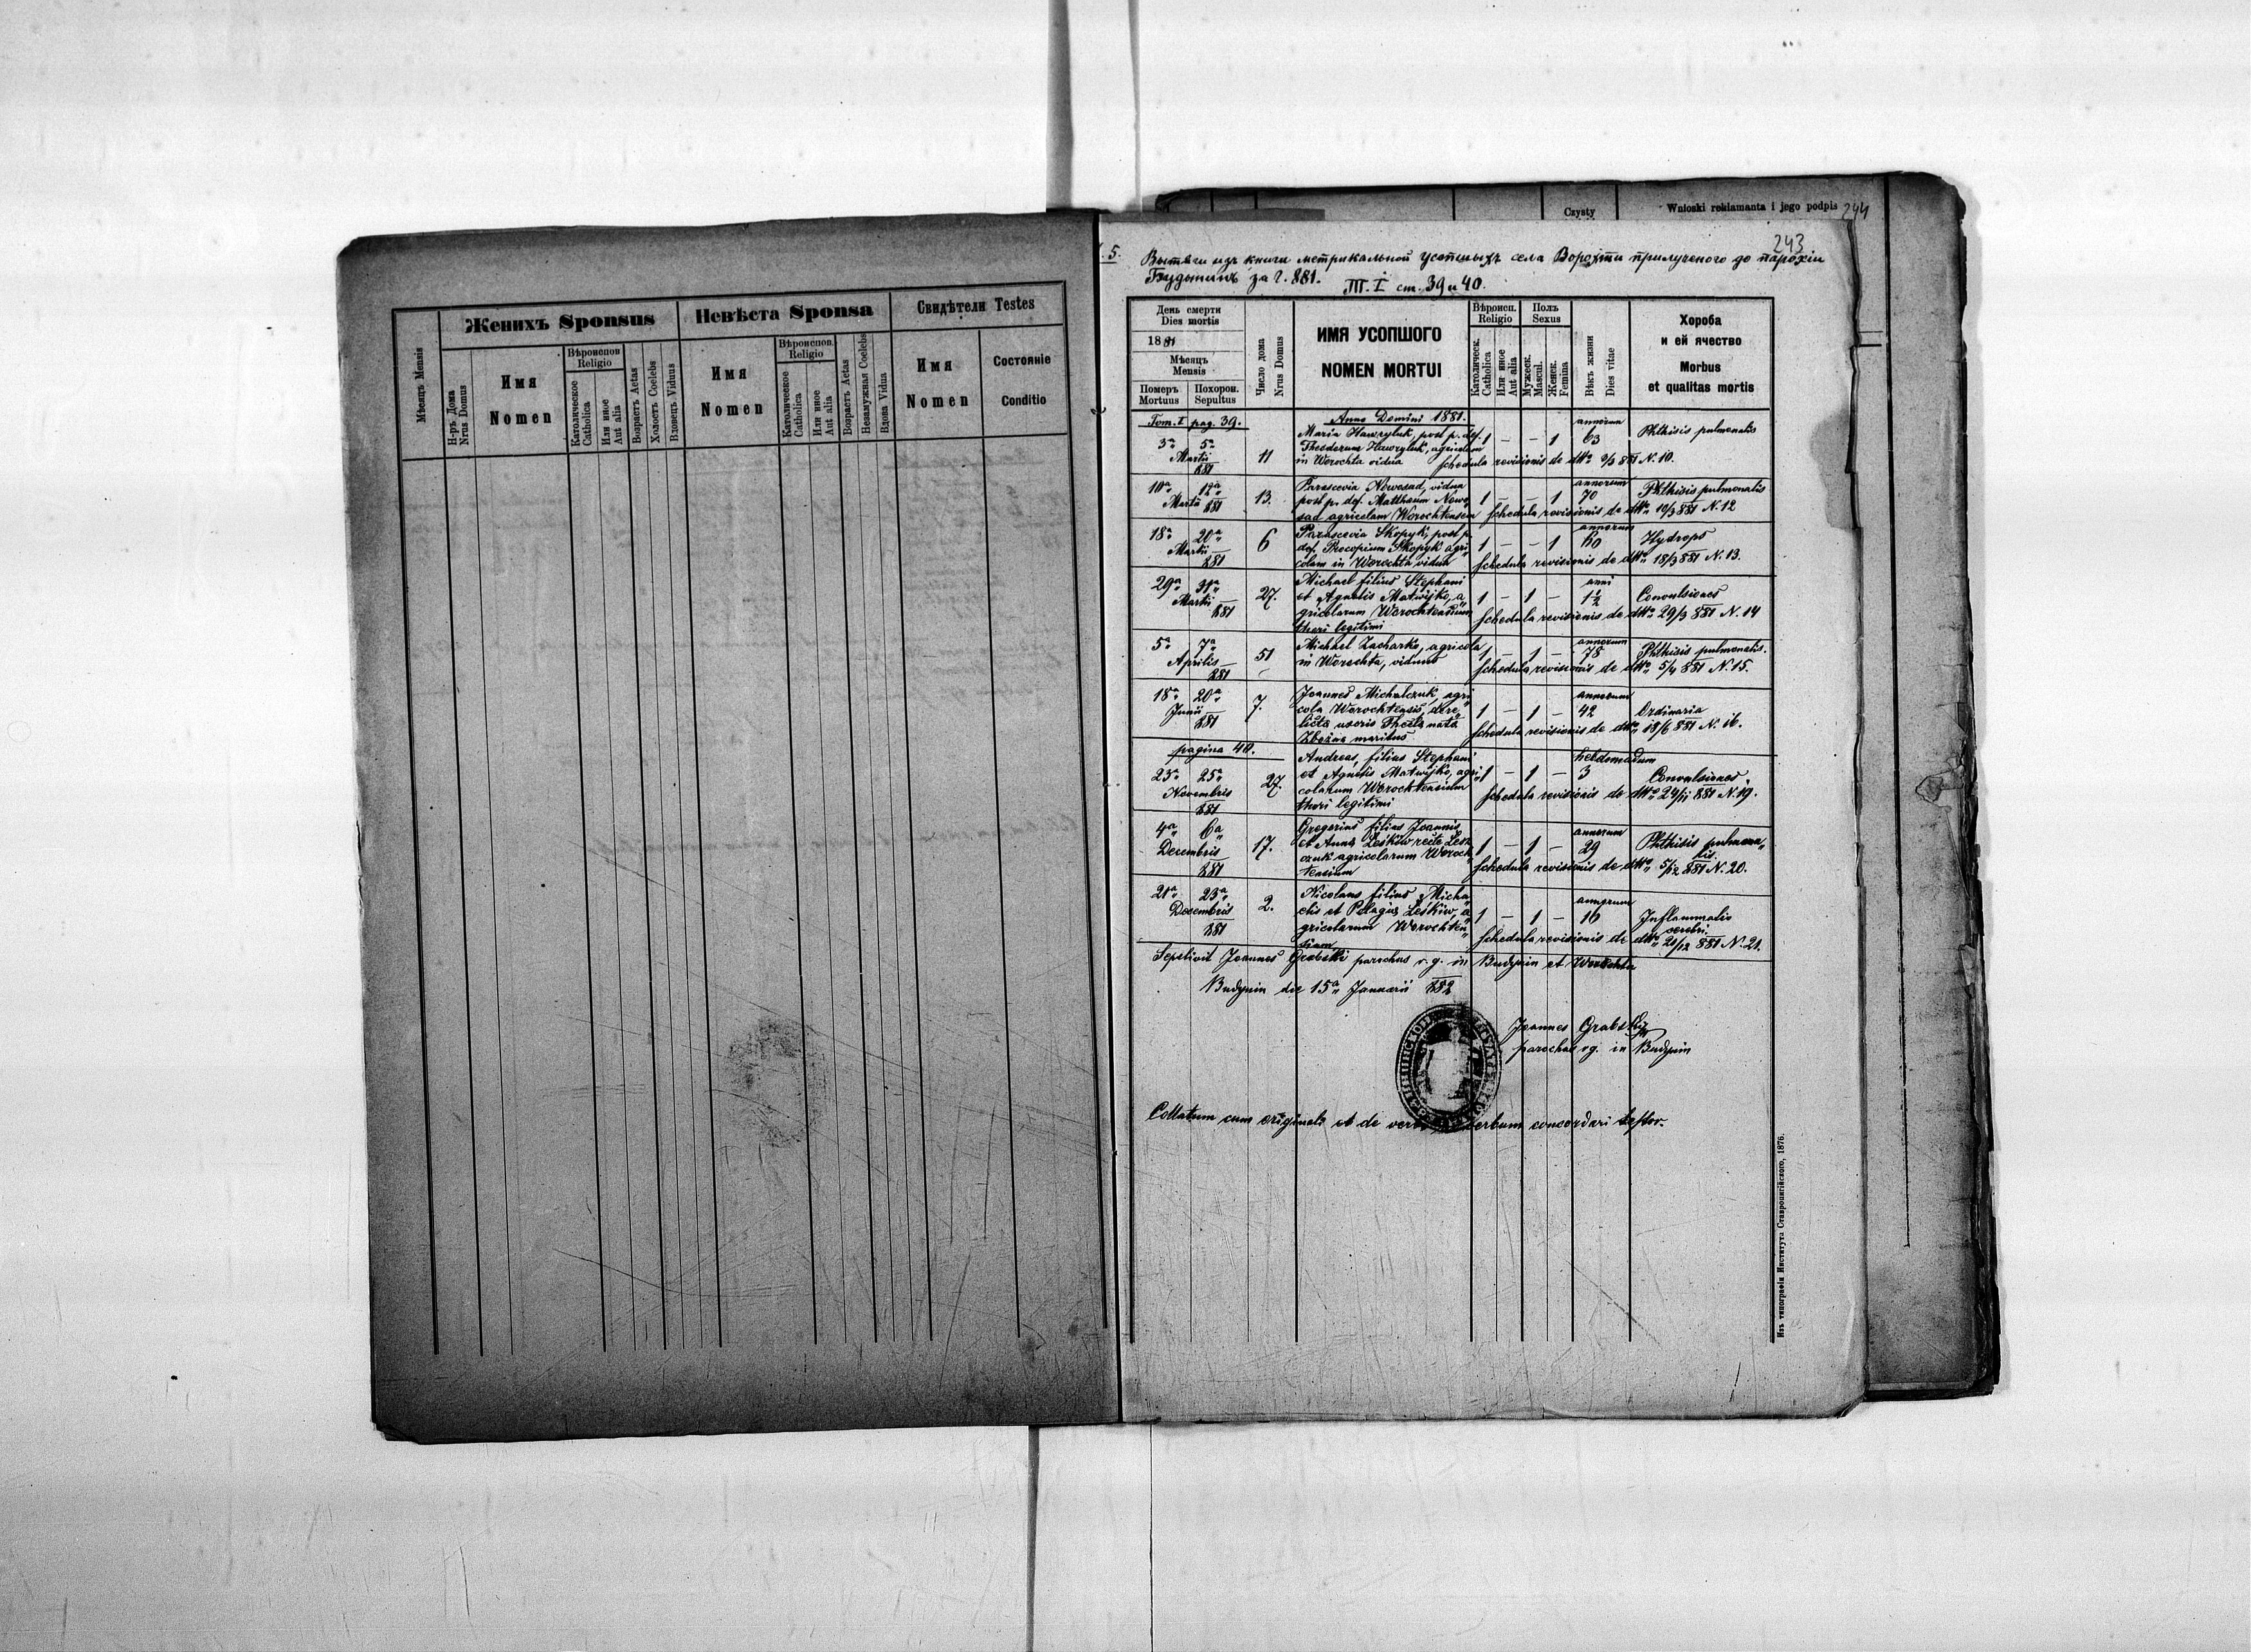 Женихъ Sponsus
Невѣста Sponsa
Свидѣтели Testes
Мѣсяцъ Mensis
Н-ръ Дома
Nrus Domus
Имя
Nomen
Вѣроиспов
Religio
Католическое
Catholica
Или иное
Aut alia
Возрастъ Aetas
Холостъ Coelebs
Вдовецъ Viduus
Имя
Nomen
Вѣроиспов.
Religio
Католическое
Catholica
Или иное
Aut alia
Возрастъ Aetas
Незамужная Coelebs
Вдова Vidua
Имя
Nomen
Состояніе
Conditio
Czysty
Wnioski reklamanta i jego podpis
244
243
5.
Вытяги изъ книги метрикальной усопшыхъ села Ворохти прилученого до парохіи
Будынинъ за г. 881.
Т. I ст. 39 и 40.
День смерти
Dies mortis
1881
Мѣсяцъ
Mensis
Померъ
Mortuus
Похорон.
Sepultus
Число дома
Nrus Domus
ИМЯ УСОПШОГО
NOMEN MORTUI
Вѣроисп.
Religio
Католическ.
Catholica
Или иное
Aut alia
Полъ
Sexus
Мужеск.
Mascul.
Женск.
Femina
Вѣкъ жизни
Dies vitae
Хороба
и ей ячество
Morbus
et qualitas mortis
Tom. I pag. 39.
Anno Domini 1881.
3a 5a
Martii
881
11
Maria Hawryluk, post p. def.
Theodorum Hawryluk, agricolam
in Worochta vidua
1 — — 1
annorum
63
Phthisis pulmonalis
Schedula revisionis de dtto 3/3 881 N. 10.
10a 12a
Martii 881
13.
Parascevia Nowosad, vidua
post p. def. Matthaeum Nowo
sad agricolam Worochtensem
1 — — 1
annorum
70
Phthisis pulmonalis
Schedula revisionis de dtto 10/3 881 N. 12
18a 20a
Martii
881
6
Parascevia Skopyk, post p.
def. Procopium Skopyk agri
colam in Worochta vidua
1 — — 1
annorum
60
Hydrops
Schedula revisionis de dtto 18/3 881 N. 13.
29a 31a
Martii
881
27.
Michael filius Stephani
et Agnetis Matwijko, a
gricolarum Worochtensium
thori legitimi
1 — 1 —
anni
1 1/2
Convulsiones
Schedula revisionis de dtto 29/3 881 N. 14
5a 7a
Aprilis
881
51
Michael Zacharko, agricola
in Worochta, viduus
1 — 1 —
annorum
78
Phthisis pulmonalis.
Schedula revisionis de dtto 5/4 881 N. 15.
18a 20a
Junii
881
7.
Joannes Michalczuk, agri
cola Worochtensis, dere
licta uxoris Thecla nata
maritus
1 — 1 —
annorum
42
Ordinaria
Schedula revisionis de dtto 18/6 881 N. 16.
pagina 40.
23a 25a
Novembris
881
27.
Andreas, filius Stephani
et Agnetis Matwijko, agri
colarum Worochtensium
thori legitimi
1 — 1 —
hebdomadum
3
Convulsiones.
Schedula revisionis de dtto 24/11 881 N. 19.
4a 6a
Decembris
881
17.
Gregorius filius Joannis
et Anna Leśkiw recte Lesz
czuk agricolarum Woroch
tensium
1 — 1 —
annorum
29
Phthisis pulmona
lis.
Schedula revisionis de dtto 5/12 881 N. 20.
21a 23a
Decembris
881
2.
Nicolaus filius Micha
elis et Pelagia Leśkiw, a
gricolarum Worochten
sium
1 — 1 —
annorum
16
Inflammatio
cerebri.
Schedula revisionis de dtto 21/12 881 N. 21.
Sepelivit Joannes Grabski parochus r. g. in Budynin et Worochta
Budynin die 15a Januarii 882
Joannes Grabski
parochus rg. in Budynin
Collatum cum originali et de verbo verbum concordari testor.
Изъ типографіи Института Ставропигійского, 1876.